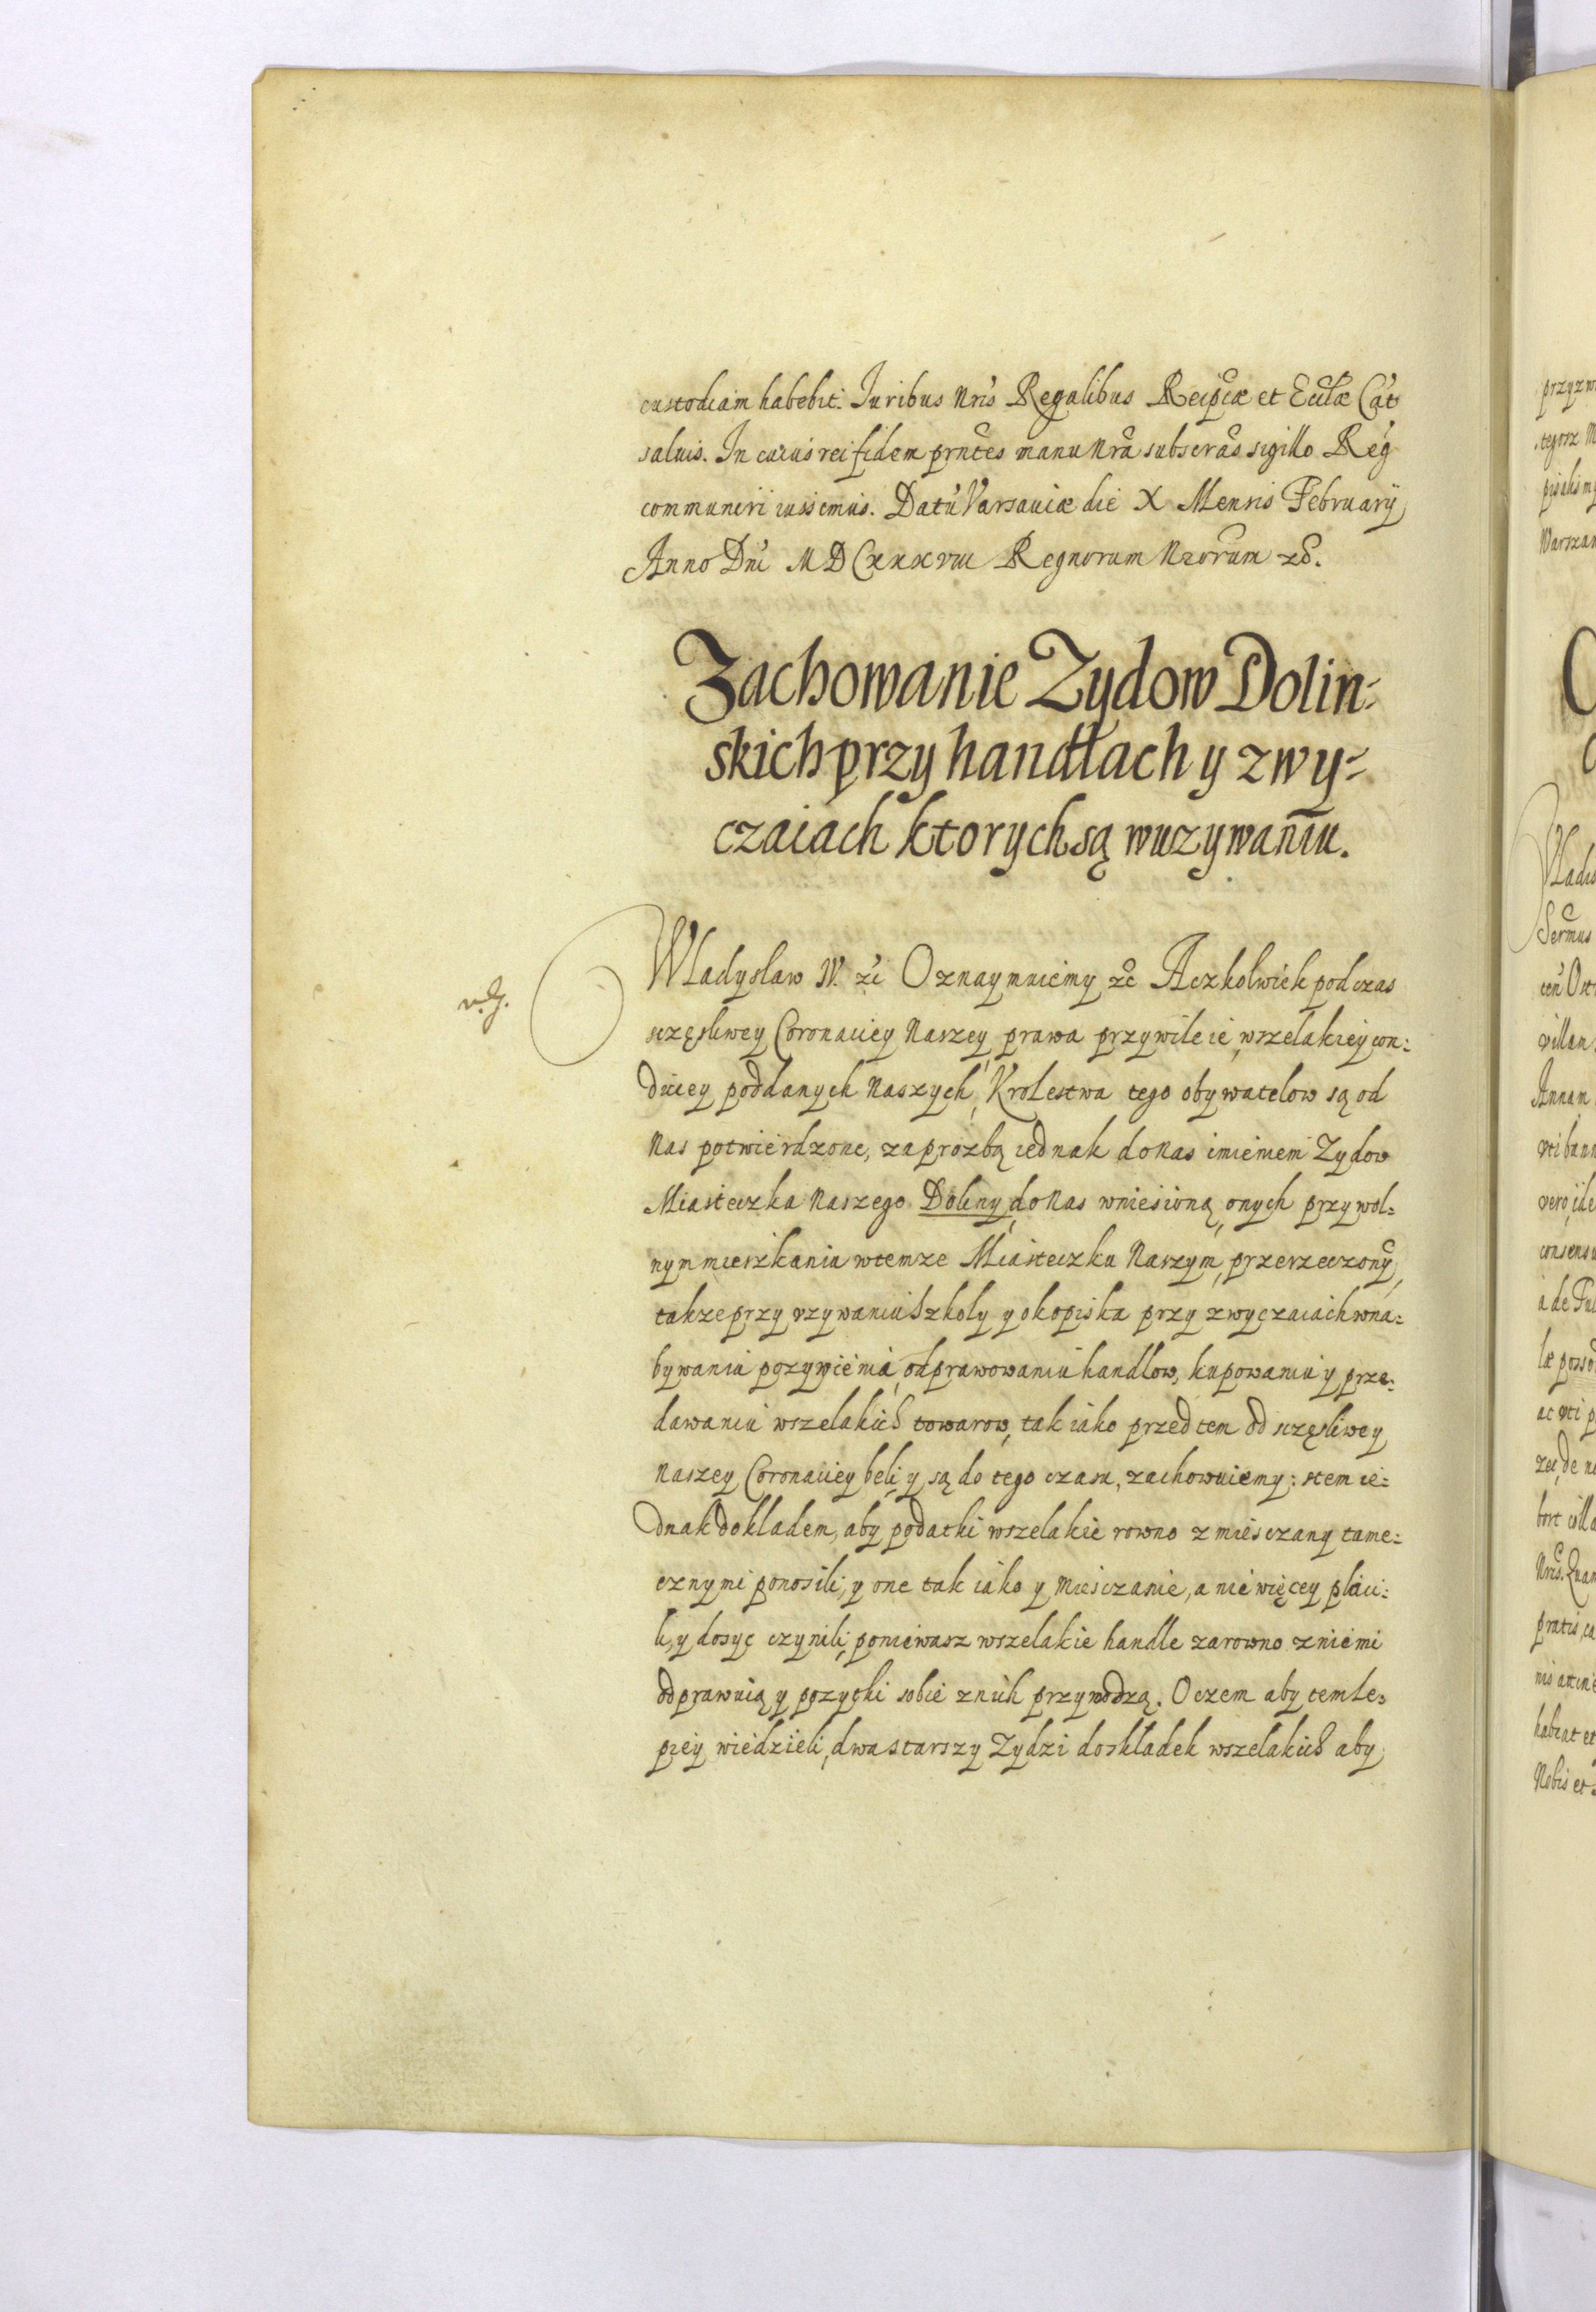 custodiam habebit. Iuribus Nris Regalibus Reipcae et Ecclae Cat
saluis. In cuius rei fidem prntes manu Nra subscras sigillo Reg
communiri iussimus. Datu Varsauiae die X Mensis February
Anno Dni MDCxxxvııı Regnorum Nrorum z&.
Zachowanie Zydow Dolin=
skich przy handlach y zwy=
czaiach ktorych są wuzywaniu.
Władysław IV. zc Oznaymuiemy zc Aczkolwiek podczas
sczęsliwey Coronaciey Naszey prawa przywileie, wszelakiey con=
diciey poddanych Naszych, Krolestwa tego obywatelow są od
Nas potwierdzone, za prozbą iednak do Nas imieniem Zydow
Miasteczka Naszego Doliny do Nas wniesioną, onych przy wol=
nym mieszkaniu w temze Miasteczku Naszym, przerzeczony,
takze przy vzywaniu Szkoly y okopiska przy zwyczaiach w na=
bywaniu pozywienia, odprawowaniu handlow, kupowaniu y prze=
dawaniu wszelakich towarow, tak iako przed tem od sczęsliwey
Naszey Coronaciey beli, y są do tego czasu, zachowuiemy: stem ie=
dnak dokladem, aby podatki wszelakie rowno z miesczany tame=
cznymi ponosili, y one tak iako y Miesczanie, a nie więcey placi=
li, y dosyc czynili, poniewasz wszelakie handle zarowno zniemi
odprawuią y pozytki sobie znich przywodzą. Oczem aby tem le=
piey wiedzieli, dwa starszy Zydzi doskladek wszelakich aby